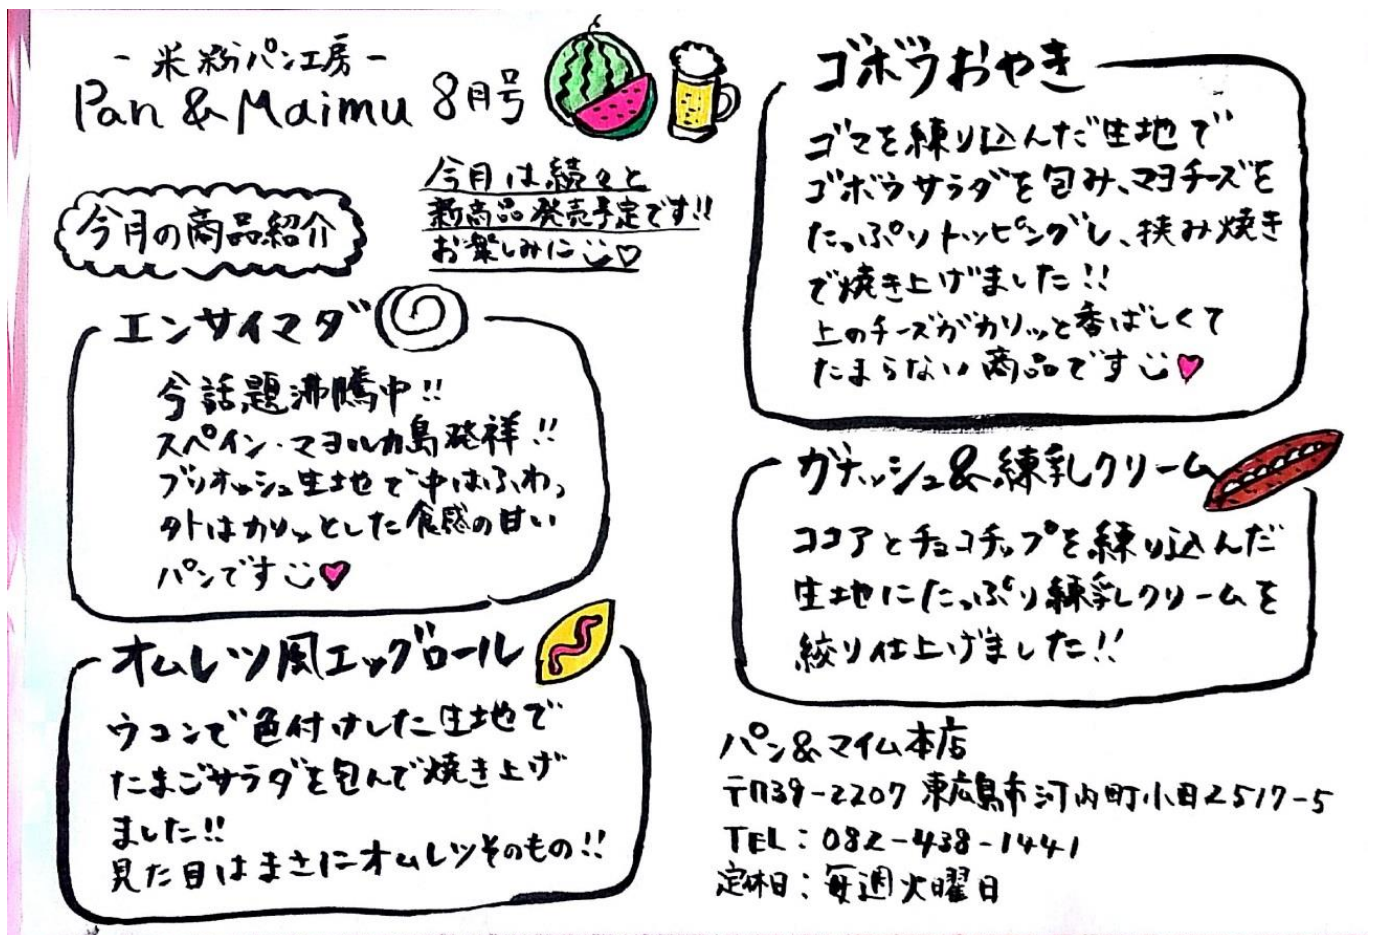 - 米粉パン工房 -
Pan & Maimu 8月号
今月は続々と
新商品発売予定です!!
お楽しみに
今月の商品紹介
エンサイマダ
今話題沸騰中!!
スペイン・マヨルカ島発祥!!
ブリオッシュ生地で中はふわっ
外はカリッとした食感の甘い
パンです
オムレツ風エッグロール
ウコンで色付けした生地で
たまごサラダを包んで焼き上げ
ました!!
見た目はまさにオムレツそのもの!!
ゴボウおやき
ゴマを練り込んだ生地で
ゴボウサラダを包み、マヨチーズを
たっぷりトッピングし、挟み焼き
で焼き上げました!!
上のチーズがカリッと香ばしくて
たまらない商品です
ガナッシュ&練乳クリーム
ココアとチョコチップを練り込んだ
生地にたっぷり練乳クリームを
絞り仕上げました!!
パン&マイム本店
〒739-2207 東広島市河内町小田2517-5
TEL:082-438-1441
定休日:毎週火曜日